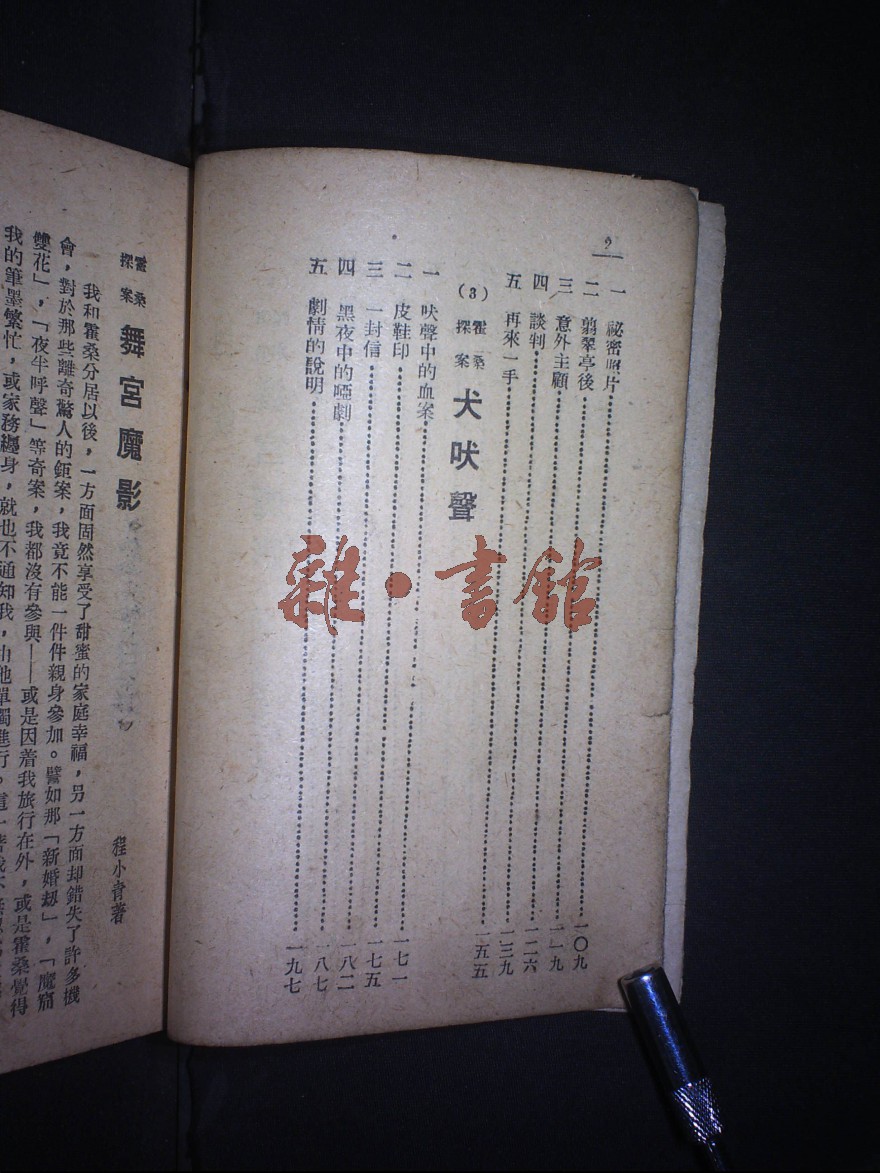 2
一 祕密照片…………一〇九
二 翡翠亭後…………一一九
三 意外主顧…………一二六
四 談判…………一三九
五 再來一手…………一五五
(3) 霍桑探案 犬吠聲
一 吠聲中的血案…………一七一
二 皮鞋印…………一七五
三 一封信…………一八二
四 黑夜中的啞劇…………一八七
五 劇情的說明…………一九七
雜·書館
霍桑探案 舞宮魔影
程小青著
我和霍桑分居以後，一方面固然享受了甜蜜的家庭幸福，另一方面却錯失了許多機
會，對於那些離奇驚人的鉅案，我竟不能一件件親身參加。譬如那「新婚刼」，「魔窟
雙花」，「夜半呼聲」等奇案，我都沒有參與——或是因着我旅行在外，或是霍桑覺得
我的筆墨繁忙，或家務纏身，就也不通知我，由他單獨進行。這一